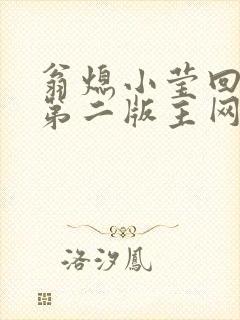 翁熄小莹回
第二版主网
洛汐鳳